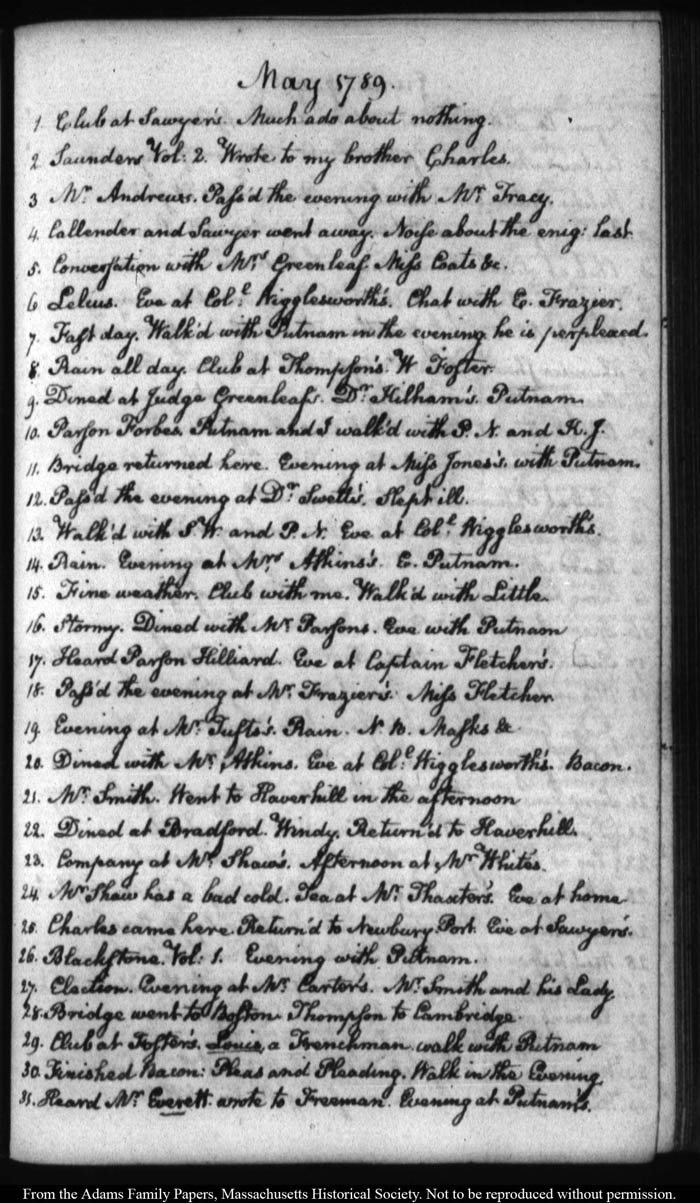 May 1789.
1. Club at Sawyer's. Much ado about nothing.
2 Saunders Vol: 2. Wrote to my brother Charles.
3 Mr. Andrews. Pass'd the evening with Mr. Tracy.
4. Callender and Sawyer went away. Noise about the enig: last
5. Conversation with Mrs. Greenleaf Miss Coats &c.
6 Lelius. Eve at Coll. Wigglesworth's. Chat with E. Frazier.
7. Fast day. Walk'd with Putnam in the evening he is perplexed.
8. Rain all day. Club at Thompson's. W Foster.
9. Dined at Judge Greenleaf's. Dr. Kilham's. Putnam.
10. Parson Forbes. Putnam and I walk'd with P. N. and K. J.
11. Bridge returned here. Evening at Miss Jones's. with Putnam.
12. Pass'd the evening at Dr. Swett's. Slept ill.
13. Walk'd with S. W. and P. N. Eve at Coll. Wigglesworth's.
14. Rain. Evening at Mrs. Atkins's. E. Putnam.
15. Fine weather. Club with me. Walk'd with Little.
16. Stormy. Dined with Mr. Parsons. Eve with Putnam
17. Heard Parson Hilliard. Eve at Captain Fletcher's.
18. Pass'd the evening at Mr. Frazier's. Miss Fletcher
19. Evening at Mr. Tufts's. Rain. N B. Masks &c
20. Dined with Mr. Atkins. Eve at Coll. Wigglesworth's. Bacon.
21. Mr. Smith. Went to Haverhill in the afternoon
22. Dined at Bradford. Windy. Return'd to Haverhill.
23. Company at Mr. Shaw's. Afternoon at Mr. White's.
24. Mr. Shaw has a bad cold. Tea at Mr. Thaxter's. Eve at home
25. Charles came here. Return'd to Newbury-Port. Eve at Sawyer's.
26. Blackstone. Vol: 1. Evening with Putnam.
27. Election. Evening at Mr. Carter's. Mr. Smith and his Lady
28. Bridge went to Boston. Thompson to Cambridge.
29. Club at Foster's. Louis, a Frenchman. walk with Putnam
30. Finished Bacon: Pleas and Pleading. Walk in the Evening.
31. Heard Mr. Everett. wrote to Freeman. Evening at Putnam's.
From the Adams Family Papers, Massachusetts Historical Society. Not to be reproduced without permission.